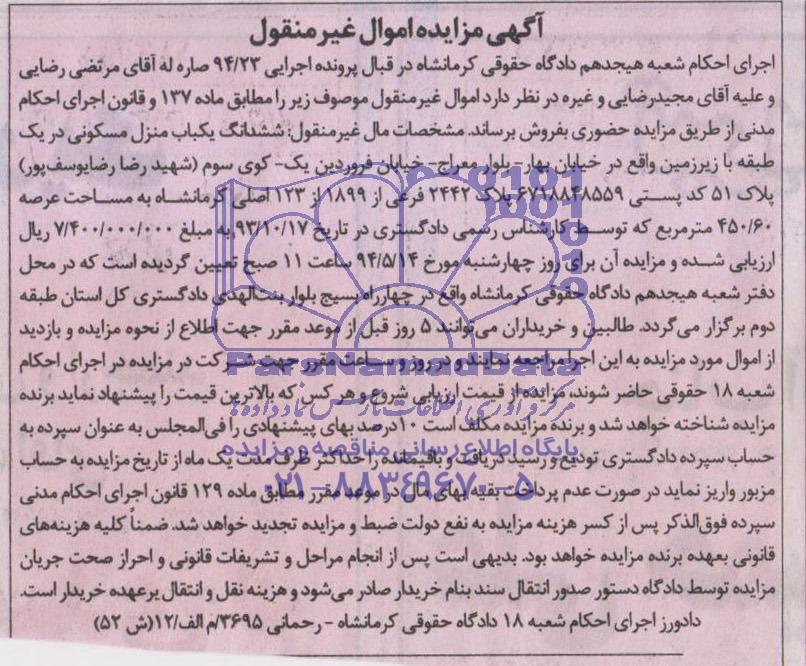 آگهی مزایده اموال غیرمنقول
اجرای احکام شعبه هیجدهم دادگاه حقوقی کرمانشاه در قبال پرونده اجرایی ۹۴/۲۳ صاره له آقای مرتضی رضایی
و علیه آقای مجیدرضایی و غیره در نظر دارد اموال غیرمنقول موصوف زیر را مطابق ماده ۱۳۷ و قانون اجرای احکام
مدنی از طریق مزایده حضوری بفروش برساند. مشخصات مال غیرمنقول: ششدانگ یکباب منزل مسکونی در یک
طبقه با زیرزمین واقع در خیابان بهار- بلوار معراج- خیابان فروردین یک- کوی سوم (شهید رضا رضایوسف‌پور)
پلاک ۵۱ کد پستی ۶۷۱۸۸۴۸۵۵۹ پلاک ۲۴۴۲ فرعی از ۱۸۹۹ از ۱۲۳ اصلی کرمانشاه به مساحت عرصه
۴۵۰/۶۰ مترمربع که توسط کارشناس رسمی دادگستری در تاریخ ۹۳/۱۰/۱۷ به مبلغ ۷/۴۰۰/۰۰۰/۰۰۰ ریال
ارزیابی شده و مزایده آن برای روز چهارشنبه مورخ ۹۴/۵/۱۴ ساعت ۱۱ صبح تعیین گردیده است که در محل
دفتر شعبه هیجدهم دادگاه حقوقی کرمانشاه واقع در چهارراه بسیج بلوار بنت‌الهدی دادگستری کل استان طبقه
دوم برگزار می‌گردد. طالبین و خریداران می‌توانند ۵ روز قبل از موعد مقرر جهت اطلاع از نحوه مزایده و بازدید
از اموال مورد مزایده به این اجرا مراجعه نمایند و در روز و ساعت مقرر جهت شرکت در مزایده در اجرای احکام
شعبه ۱۸ حقوقی حاضر شوند، مزایده از قیمت ارزیابی شروع و هر کس که بالاترین قیمت را پیشنهاد نماید برنده
مزایده شناخته خواهد شد و برنده مزایده مکلف است ۱۰درصد بهای پیشنهادی را فی‌المجلس به عنوان سپرده به
حساب سپرده دادگستری تودیع و رسید دریافت و باقیمانده را حداکثر ظرف مدت یک ماه از تاریخ مزایده به حساب
مزبور واریز نماید در صورت عدم پرداخت بقیه بهای مال در موعد مقرر مطابق ماده ۱۲۹ قانون اجرای احکام مدنی
سپرده فوق‌الذکر پس از کسر هزینه مزایده به نفع دولت ضبط و مزایده تجدید خواهد شد. ضمناً کلیه هزینه‌های
قانونی بعهده برنده مزایده خواهد بود. بدیهی است پس از انجام مراحل و تشریفات قانونی و احراز صحت جریان
مزایده توسط دادگاه دستور صدور انتقال سند بنام خریدار صادر می‌شود و هزینه نقل و انتقال برعهده خریدار است.
دادورز اجرای احکام شعبه ۱۸ دادگاه حقوقی کرمانشاه - رحمانی ۳۶۹۵/م الف/۱۲(ش ۵۲)
ParsNamadData
پایگاه اطلاع رسانی مناقصه و مزایده
۰۲۱-۸۸۳۴۹۶۷۰-۵